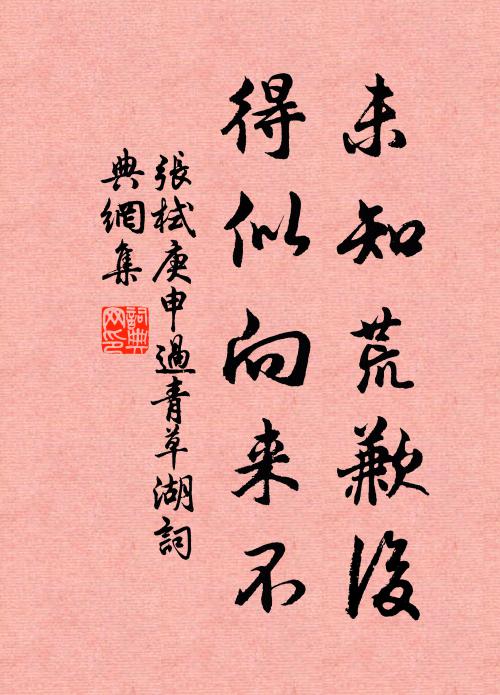 未知荒歉後
得似向来不
張栻庚申過青草湖詞
典網集
詞典網印